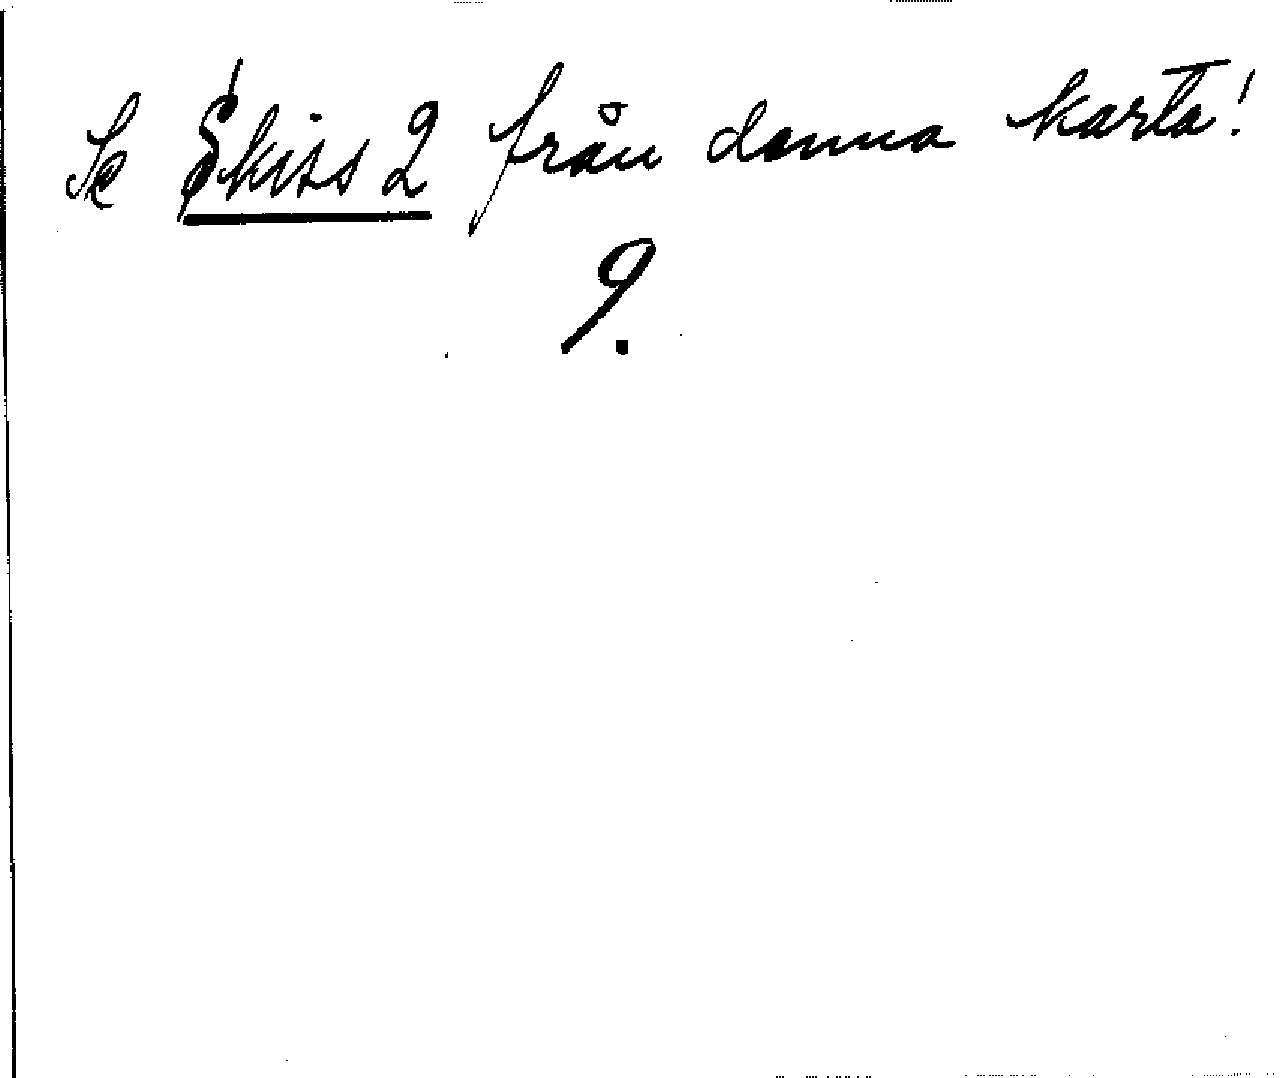 Se Skiss 2 från denna karta!
9.